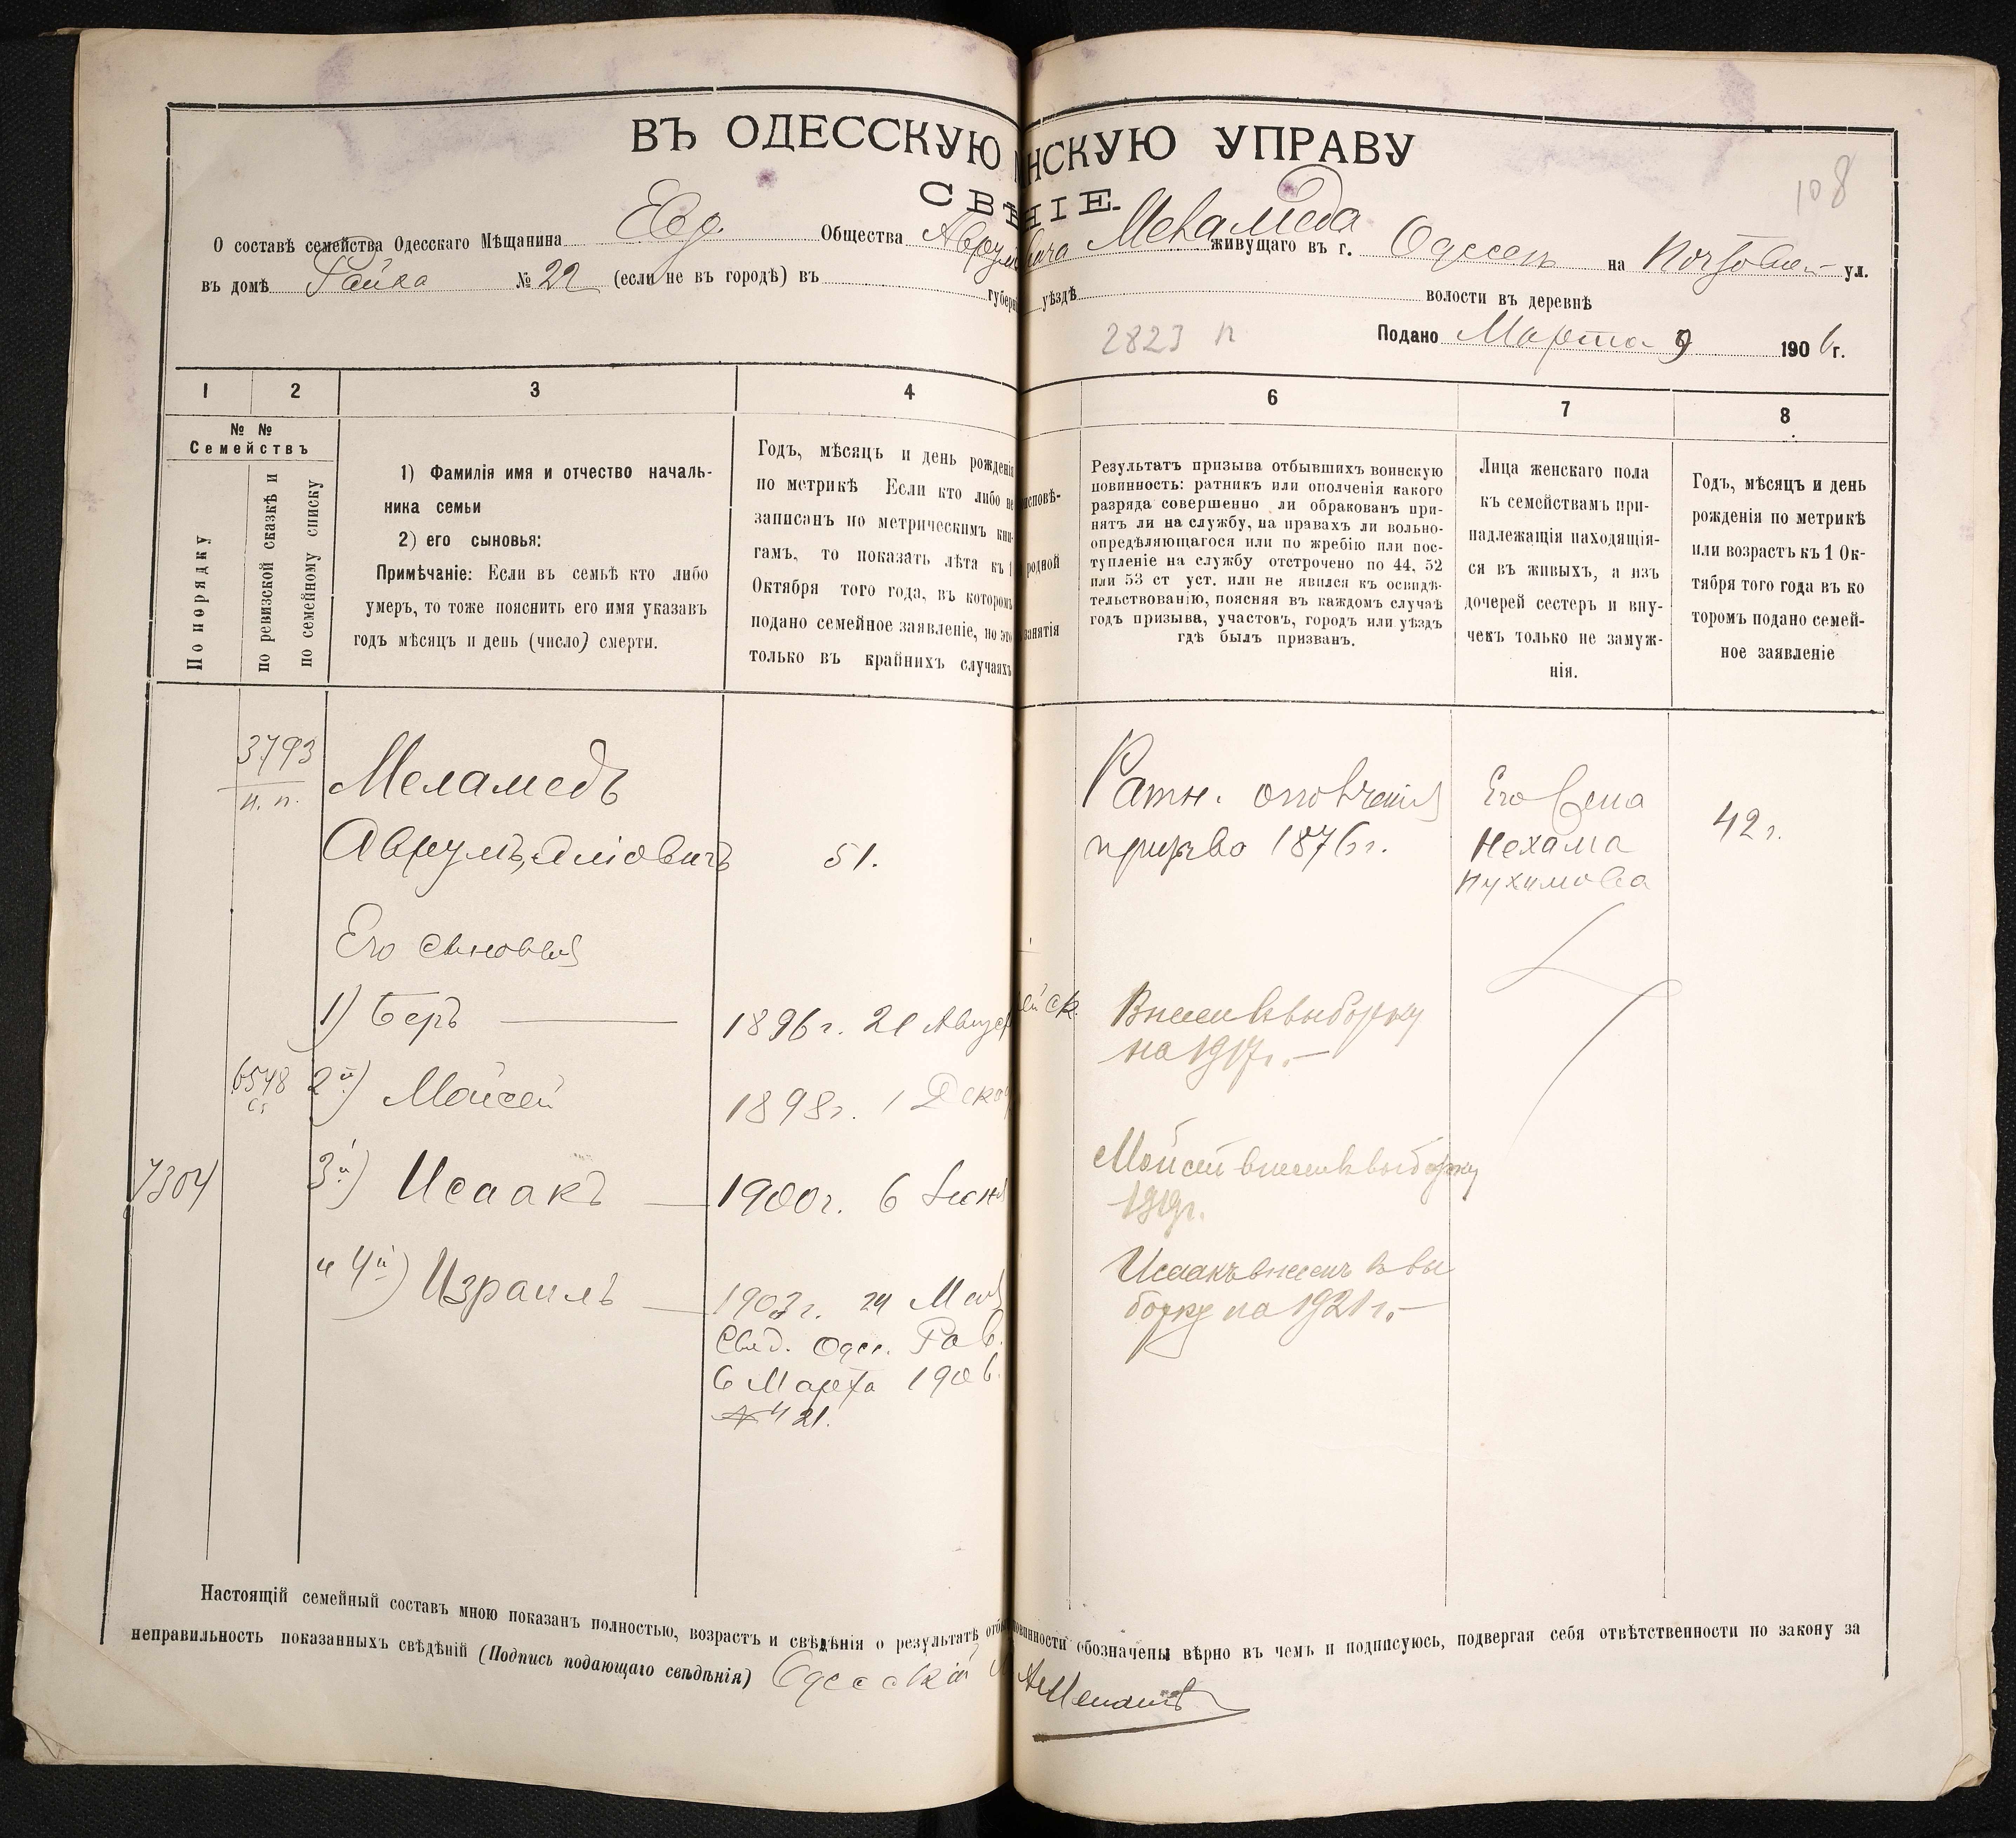 ВЪ ОДЕССКУЮ НСКУЮ УПРАВУ
СВѢ НІЕ.
108
О составѣ семейства Одесскаго Мѣщанина Евр. Общества Аврума Меламеда живущаго въ г. Одессѣ на Почтовой ул.
въ домѣ № 22 (если не въ городѣ) въ губерн уѣздѣ волости въ деревнѣ
2823 п
Подано Марта 9 1906 г.
1 2 3 4 6 7 8
№ №
Семействъ
По порядку
по ревизской сказкѣ и
по семейному списку
1) Фамилія имя и отчество началь-
ника семьи
2) его сыновья:
Примѣчаніе: Если въ семьѣ кто либо
умеръ, то тоже пояснить его имя указавъ
годъ мѣсяцъ и день (число) смерти.
Годъ, мѣсяцъ и день рожденія
по метрикѣ Если кто либо не
записанъ по метрическимъ кни-
гамъ, то показать лѣта къ 1
Октября того года, въ которомъ
подано семейное заявленіе, но это
только въ крайнихъ случаяхъ
исповѣ-
родной
занятія
Результатъ призыва отбывшихъ воинскую
повинность: ратникъ или ополченія какого
разряда совершенно ли обракованъ при-
нятъ ли на службу, на правахъ ли вольно-
опредѣляющагося или по жребію или пос-
тупленіе на службу отстрочено по 44, 52
или 53 ст уст. или не явился къ освидѣ-
тельствованію, поясняя въ каждомъ случаѣ
годъ призыва, участокъ, городъ или уѣздъ
гдѣ былъ призванъ.
Лица женскаго пола
къ семействамъ при-
надлежащія находящія-
ся въ живыхъ, а изъ
дочерей сестеръ и вну-
чекъ только не замуж-
нія.
Годъ, мѣсяцъ и день
рожденія по метрикѣ
или возрастъ къ 1 Ок-
тября того года въ ко
торомъ подано семей-
ное заявленіе
3793
п. п.
Меламедъ
Аврумъ, Эліовичъ 51.
Ратн. ополченія
призыва 1876 г.
Его жена
Нехама
Нухимова
42 г.
Его сыновья
1) Беръ 1896 г. 21 Август ейск.
Внесен в выборку
на 1917 г.
6548
2й) Мойсей 1898 г. 1 Декаб
Мойсей внесен в выборку
1919 г.
7304
3й) Исаакъ 1900 г. 6 Іюня
Исаакъ внесенъ в вы
борку на 1921 г.
и 4й) Израиль 1903 г. 24 Мая
Свид. Одес. Рав.
6 Марта 1906
№ 421.
Настоящій семейный составъ мною показанъ полностью, возрастъ и свѣдѣнія о результатѣ отбы повинности обозначены вѣрно въ чемъ и подписуюсь, подвергая себя отвѣтственности по закону за
неправильность показанныхъ свѣдѣній (Подпись подающаго свѣдѣнія) Одесскій М А Меламедъ